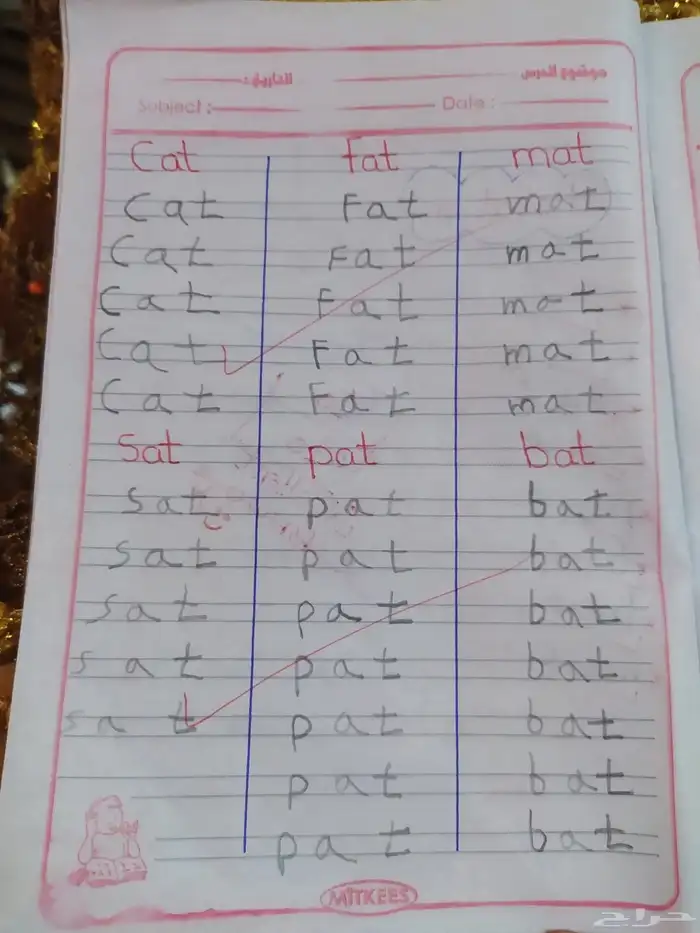 موضوع الدرس : التاريخ :
Subject : Date :
Cat fat mat
Cat Fat mat
Cat Fat mat
Cat Fat mat
Cat Fat mat
Cat Fat mat
Sat pat bat
Sat pat bat
sat pat bat
sat pat bat
sat pat bat
sa t pat bat
pat bat
pat bat
MITKEES
حراج